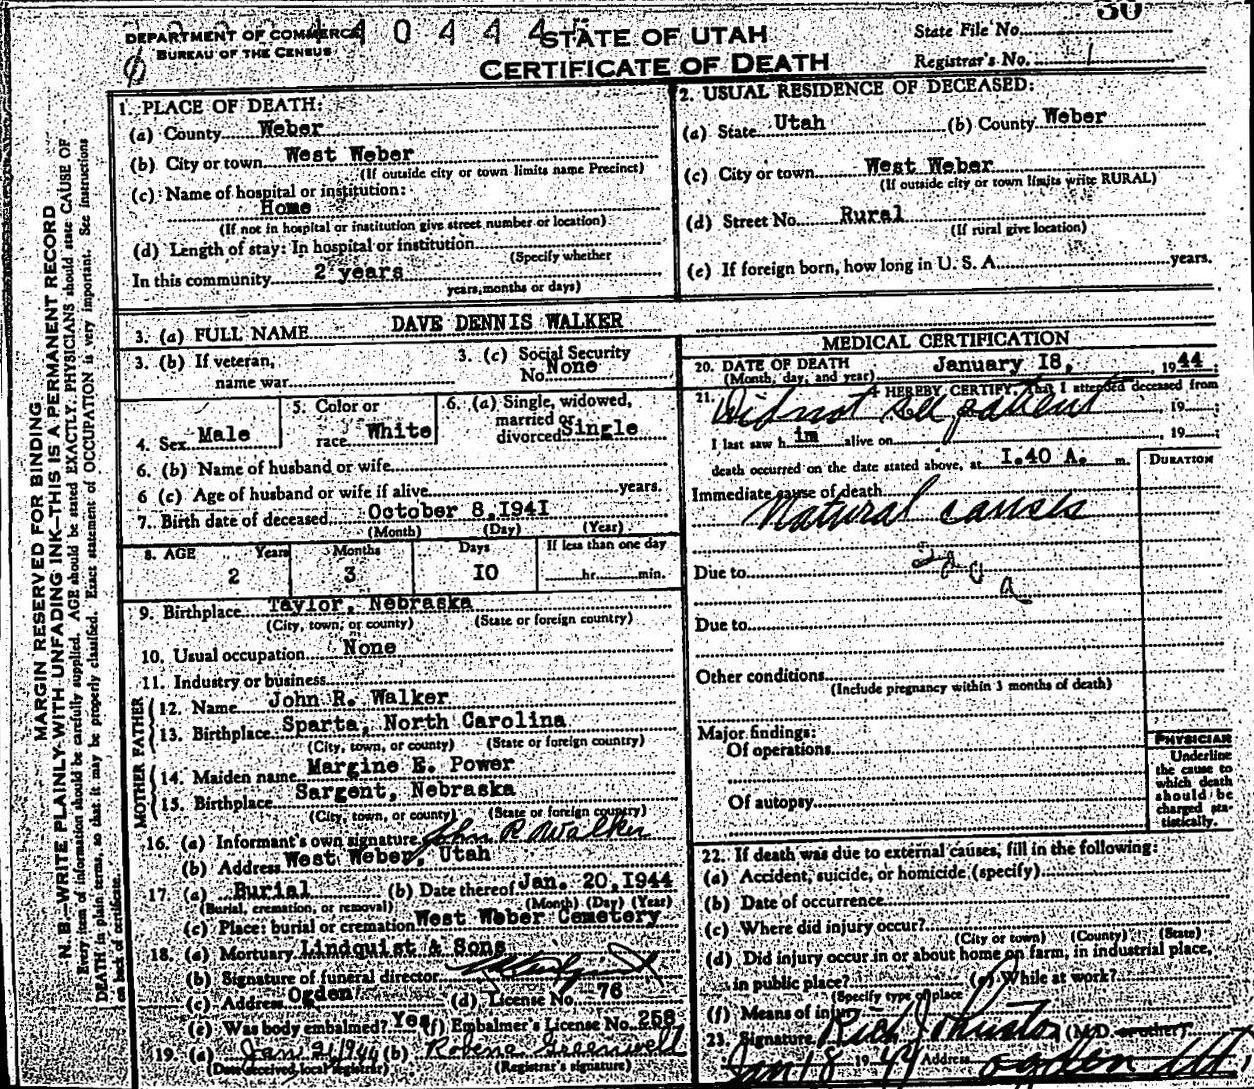 DEPARTMENT OF COMMERCE
BUREAU OF THE CENSUS
STATE OF UTAH
CERTIFICATE OF DEATH
State File No. 30
Registrar's No. 1
MARGIN RESERVED FOR BINDING
N. B.—WRITE PLAINLY WITH UNFADING INK—THIS IS A PERMANENT RECORD
Every item of information should be carefully supplied. AGE should be stated EXACTLY. PHYSICIANS should state CAUSE OF
DEATH in plain terms, so that it may be properly classified. Exact statement of OCCUPATION is very important. See instructions
on back of certificate.
1. PLACE OF DEATH:
(a) County Weber
(b) City or town West Weber
(If outside city or town limits name Precinct)
(c) Name of hospital or institution:
Home
(If not in hospital or institution give street number or location)
(d) Length of stay: In hospital or institution
(Specify whether
In this community 2 years
years, months or days)
2. USUAL RESIDENCE OF DECEASED:
(a) State Utah (b) County Weber
(c) City or town West Weber
(If outside city or town limits write RURAL)
(d) Street No. Rural
(If rural give location)
(e) If foreign born, how long in U. S. A. years.
3. (a) FULL NAME DAVE DENNIS WALKER
3. (b) If veteran,
name war
3. (c) Social Security
No. None
4. Sex Male
5. Color or
race White
6. (a) Single, widowed,
married or
divorced Single
6. (b) Name of husband or wife
6 (c) Age of husband or wife if alive years.
7. Birth date of deceased October 8, 1941
(Month) (Day) (Year)
8. AGE Years Months Days If less than one day
2 3 10 hr. min.
9. Birthplace Taylor, Nebraska
(City, town, or county) (State or foreign country)
10. Usual occupation None
11. Industry or business
FATHER
12. Name John R. Walker
13. Birthplace Sparta, North Carolina
(City, town, or county) (State or foreign country)
MOTHER
14. Maiden name Margine E. Power
15. Birthplace Sargent, Nebraska
(City, town, or county) (State or foreign country)
16. (a) Informant's own signature John R Walker
(b) Address West Weber, Utah
17. (a) Burial (b) Date thereof Jan. 20, 1944
(Burial, cremation, or removal) (Month) (Day) (Year)
(c) Place: burial or cremation West Weber Cemetery
18. (a) Mortuary Lindquist & Sons
(b) Signature of funeral director
(c) Address Ogden (d) License No. 76
(e) Was body embalmed? Yes (f) Embalmer's License No. 258
19. (a) Jan 21 1944 (b) Robena Greenwell
(Date received, local registrar) (Registrar's signature)
MEDICAL CERTIFICATION
20. DATE OF DEATH January 18, 1944
(Month, day, and year)
21. I HEREBY CERTIFY, That I attended deceased from
Did not see patient , 19
I last saw h im alive on , 19 ;
death occurred on the date stated above, at 1.40 A. m.
DURATION
Immediate cause of death
Natural causes
Due to
Due to
Other conditions
(Include pregnancy within 3 months of death)
Major findings:
Of operations
Of autopsy
PHYSICIAN
Underline
the cause to
which death
should be
charged sta-
tistically.
22. If death was due to external causes, fill in the following:
(a) Accident, suicide, or homicide (specify)
(b) Date of occurrence
(c) Where did injury occur?
(City or town) (County) (State)
(d) Did injury occur in or about home on farm, in industrial place,
in public place? (e) While at work?
(Specify type of place
(f) Means of injury
23. Signature Rich Johnston (M.D. or other)
Jan 18 1944 Address Ogden Ut